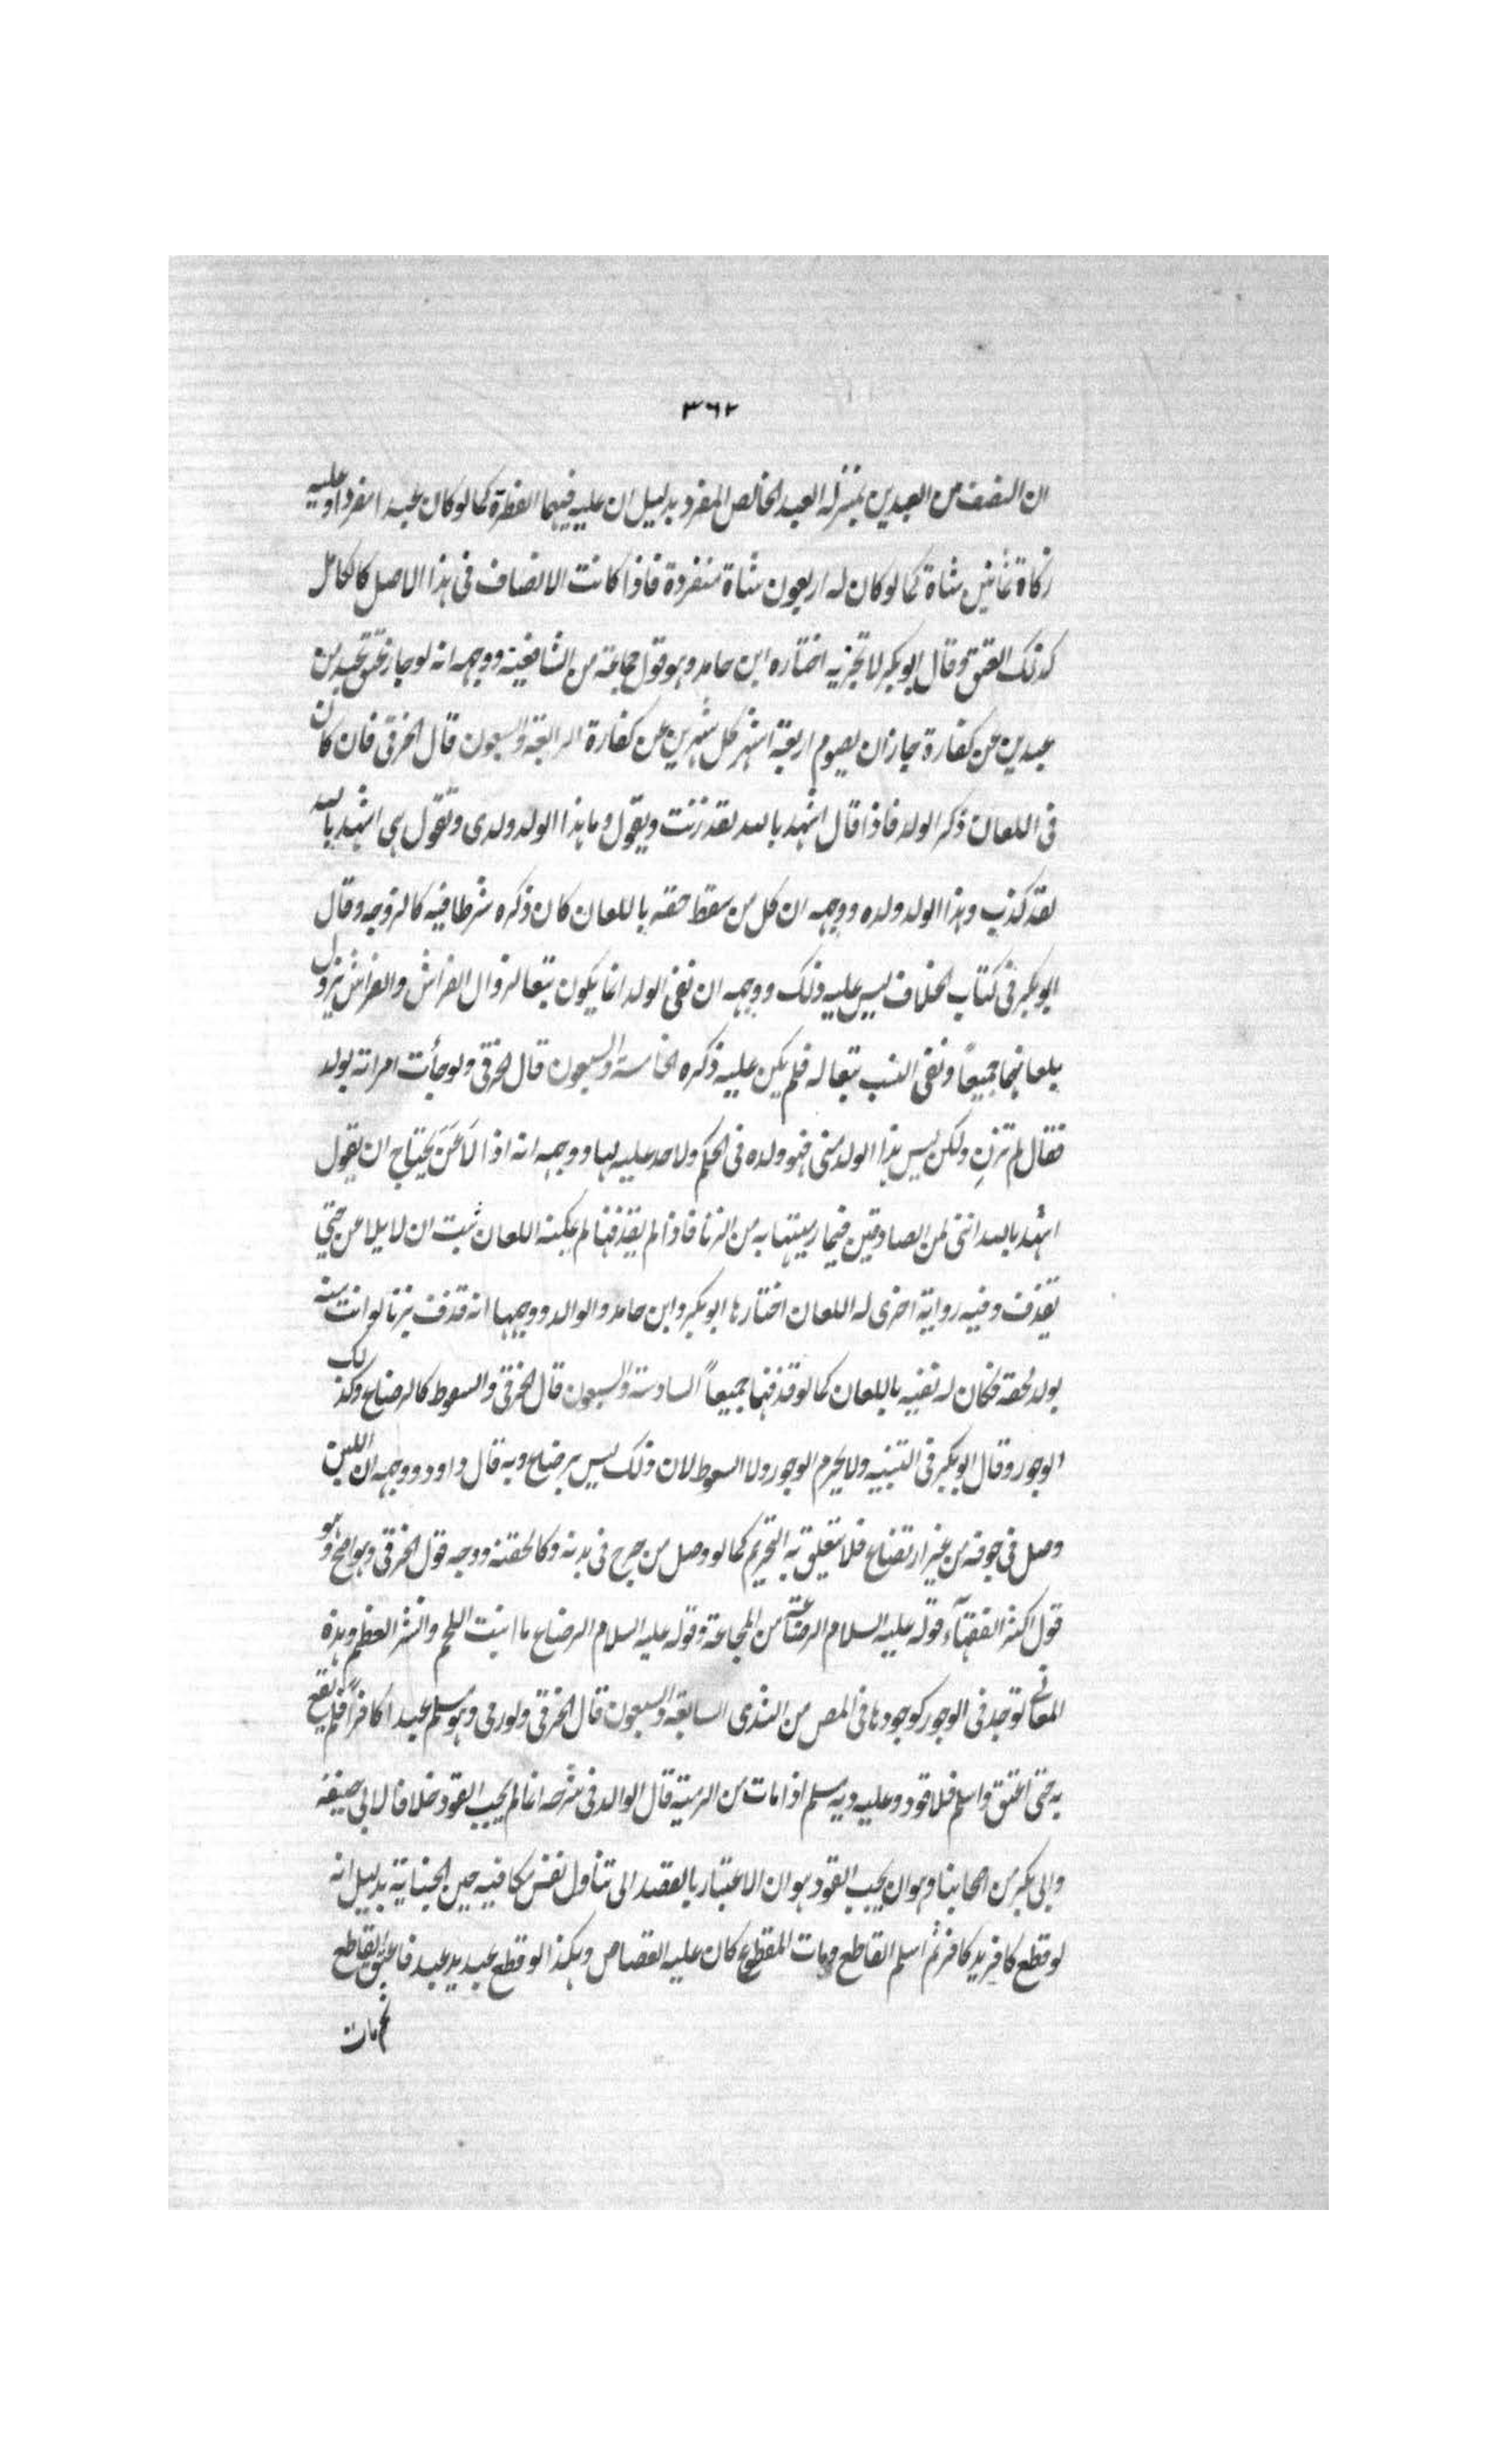 ٣٦٢
ان النصف من العبدين بمنزلة العبد الخالص المفرد بدليل ان عليه فيهما الفطرة كما لو كان عبدا منفردا وعليه
زكاة ثمانين شاة كما لو كان له اربعون شاة منفردة فاذا كانت الانصاف في هذا الاصل كالكامل
كذلك العتق وقال ابو بكر لا تجزيه اختاره ابن حامد وهو قول جماعة من الشافعية ووجهه انه لو جاز عتق عبد من
عبدين عن كفارة جاز ان يصوم اربعة اشهر كل شهرين عن كفارة الرابعة والسبعون قال الخرقي فان كان
في اللعان ذكر الولد فاذا قال اشهد بالله لقد زنت ويقول وما هذا الولد ولدى وتقول هي اشهد بالله
لقد كذب وهذا الولد ولده ووجهه ان كل من سقط حقه باللعان كان ذكره شرطا فيه كالزوجه وقال
ابو بكر في كتاب الخلاف ليس عليه ذلك ووجهه ان نفى الولد انما يكون تبعا لزوال الفراش والفراش يزول
بلعانهما جميعاً ونفى النسب تبعا له فلم يكن عليه ذكره الخامسة والسبعون قال الخرقي ولو جأت امراته بولد
فقال لم تزنِ ولكن ليس هذا الولد منى فهو ولده في الحكم ولا حد عليه لها ووجهه انه اذا لَاعَنَ يحتاج ان يقول
اشهد بالله اننى لمن الصادقين فيما رميتها به من الزنا فاذا لم يقذفها لم يمكنه اللعان ثبت ان لا يلاعن حتى
يقذف وفيه رواية اخرى له اللعان اختارها ابو بكر وابن حامد والوالد ووجهها انه قذف بزنا لو اتت منه
بولد لحقه فكان له نفيه باللعان كما لو قذفهما جميعاً السادسة والسبعون قال الخرقي والسعوط كالرضاع وكذلك
الوجور وقال ابو بكر في التنبيه ولا يحرم الوجور ولا السعوط لان ذلك ليس برضاع وبه قال داود ووجهه ان اللبن
وصل في جوفه من غير ارتضاع فلا يتعلق به التحريم كما لو وصل من جرح في بدنه وكالحقنة ووجه قول الخرقي وهو اصح وهو
قول اكثر الفقهآء قوله عليه السلام الرضاعة من المجاعة وقوله عليه السلام الرضاع ما انبت اللحم وانشز العظم وهذه
المعانى توجد في الوجور كوجودها في المص من الثدى السابعة والسبعون قال الخرقي ولو رمى وهو مسلم عبدا كافراً فلم يقع
به حتى اعتق واسلم فلا قود وعليه دية مسلم اذا مات من الرمية قال الوالد في شرحه انما لم يجب القود خلافا لابى حنيفة
وابى بكر من اصحابنا وهو ان يجيب القود هو ان الاعتبار بالقصد الى تناول نفس مكافيه حين الجناية بدليل انه
لو قطع كافر يد كافر ثم اسلم القاطع ومات المقطوع كان عليه القصاص وهكذا لو قطع عبد يد عبد فاعتق القاطع
ثم مات